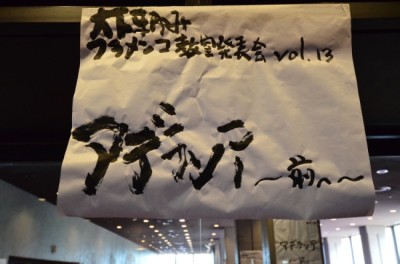 フラメンコ教室発表会 vol.13
アデランテ
～前へ～